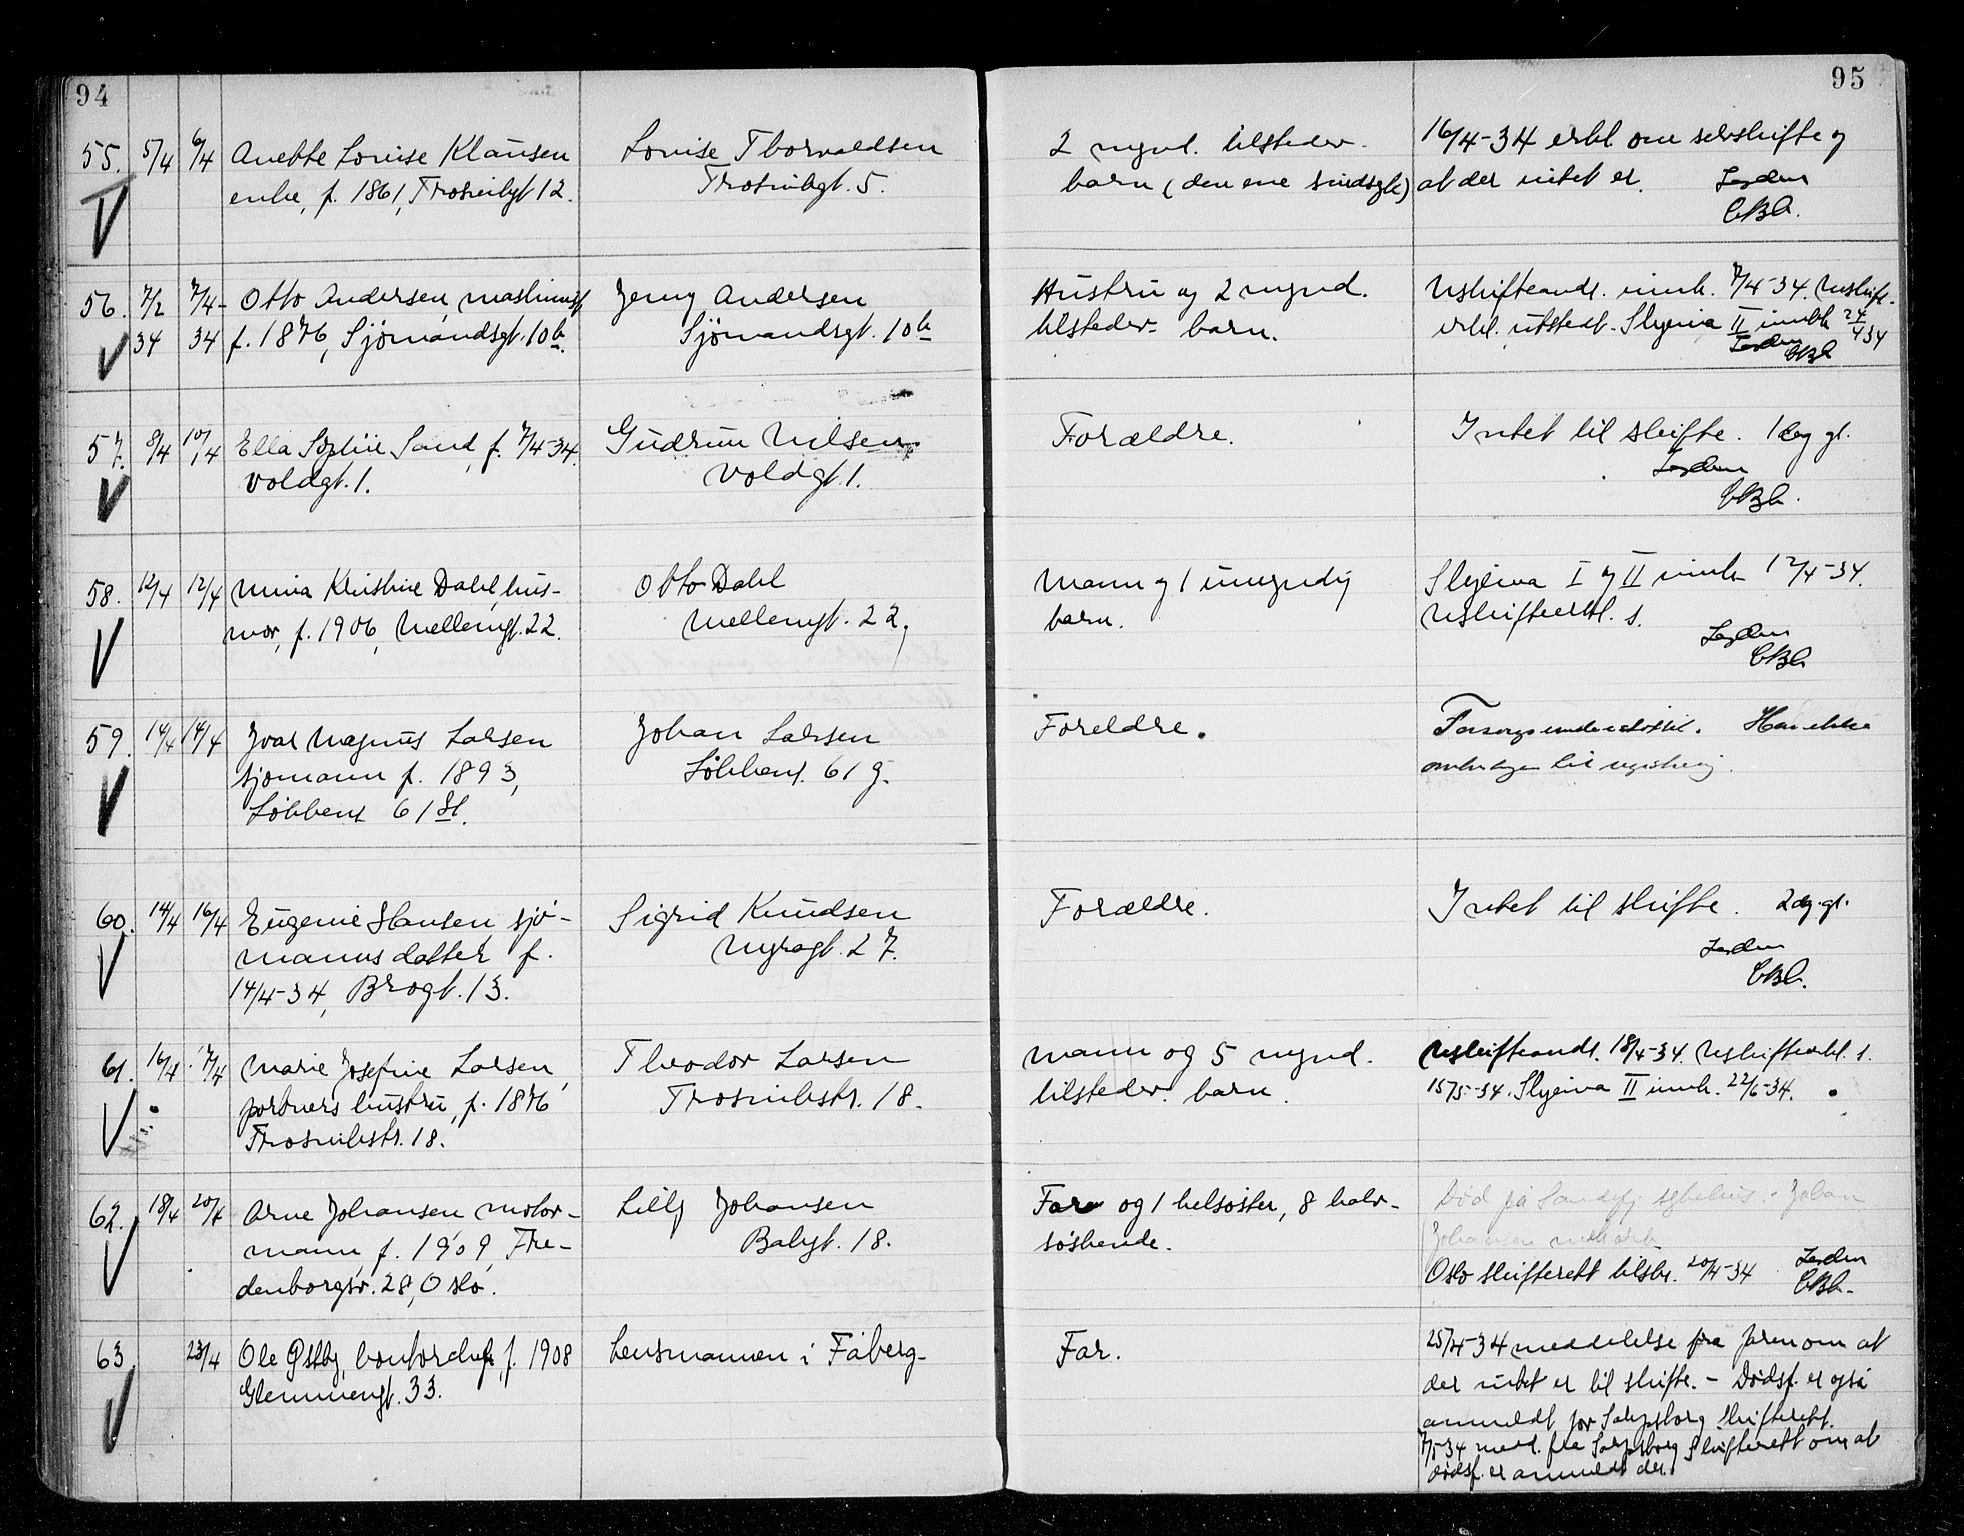 94
95
55. 5/4 6/4 Anette Louise Klausen Louise Thorvaldsen 2 mynd. tilstedev. 16/4-34 erkl om selvskifte og
enke, f. 1861, Trosvikgt 12. Trosvikgt. 5. barn (den ene sindsyk) at der intet er.
56. 7/2 7/4- Otto Andersen, maskinist Jenny Andersen Hustru og 2 mynd. Uskifteandr. innk. 7/4-34. Uskift.
34 34 f. 1876, Sjømandsgt. 10b. Sjömandsgt. 10b tilstedev. barn. erkl. utstedt. Skjema II innk 24/4 34
57. 8/4 10/4 Ella Sophie Sand, f. 7/4-34. Gudrun Nilsen Forældre. Intet til skifte. 1 dag gl.
Voldgt. 1. Voldgt. 1.
58. 12/4 12/4 Mina Kristine Dahl, hus- Otto Dahl Mann og 1 umyndig Skjema I og II innk 12/4-34.
mor, f. 1906, Mellemgt. 22. Mellemgt. 22. barn. Uskifteerkl. s.
59. 14/4 14/4 Ivar Magnus Larsen Johan Larsen Foreldre. Forsorgsunderstøttet. Har ikke
sjømann f. 1893, 61 g. til
61
60. 14/4 16/4 Eugenie Hansen sjö- Sigrid Knudsen Forældre. Intet til skifte. 2 dg. gl.
manns datter f. Nyragt. 27.
14/4-34, Brogt. 13.
61. 16/4 17/4 Marie Josefine Larsen, Theodor Larsen Mann og 5 mynd. Uskifteandr. 18/4-34. Uskifteerkl. s.
portners hustru, f. 1876 Trosvikstr. 18. tilstedev. barn. 15/5-34. Skjema II innk. 22/6-34.
Trosvikstr. 18.
62. 18/4 20/4 Arne Johansen motor- Lilly Johansen Far og 1 helsøster, 8 halv- Död på Sandefj. sykehus. Johan
mann, f. 1909, Fre- Babygt. 18. søskende. Johansen
denborgsv. 28, Oslo. Oslo skifterett tilskr. 20/4-34
63 23/4 Ole Østby, f. 1908 Lensmannen i Fåberg. Far. 25/4-34 meddelelse fra faren om at
Glemmengt. 33. der intet er til skifte. - Dødsf. er også
anmeldt for Sarpsborg skifterett.
7/5-34 medd. fra Sarpsborg Skifterett om at
dødsf. er anmeldt der.